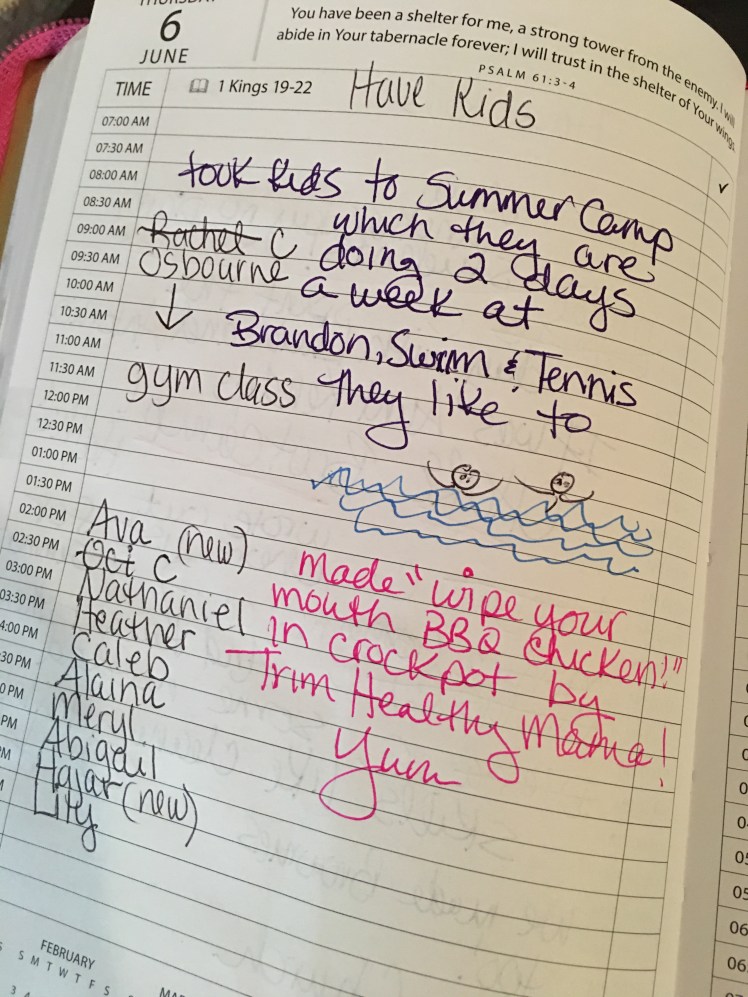 THURSDAY
6
JUNE
You have been a shelter for me, a strong tower from the enemy. I will
abide in Your tabernacle forever; I will trust in the shelter of Your wings.
PSALM 61:3-4
TIME
1 Kings 19-22
Have Kids
07:00 AM
07:30 AM
08:00 AM
took kids to Summer Camp
08:30 AM
which they are
09:00 AM
Rachel C
doing 2 days
09:30 AM
Osbourne
a week at
10:00 AM
10:30 AM
Brandon, Swim & Tennis
11:00 AM
11:30 AM
gym class they like to
12:00 PM
12:30 PM
01:00 PM
01:30 PM
02:00 PM
Ava (new)
made "wipe your
02:30 PM
Oct C
mouth BBQ Chicken!"
03:00 PM
Nathaniel
in crockpot by
03:30 PM
Heather
Trim Healthy Mama!
4:00 PM
Caleb
Yum
30 PM
Alaina
0 PM
Meryl
PM
Abigail
M
Hajar (new)
Lity
FEBRUARY
S M T W T F S
3
05
06
06: